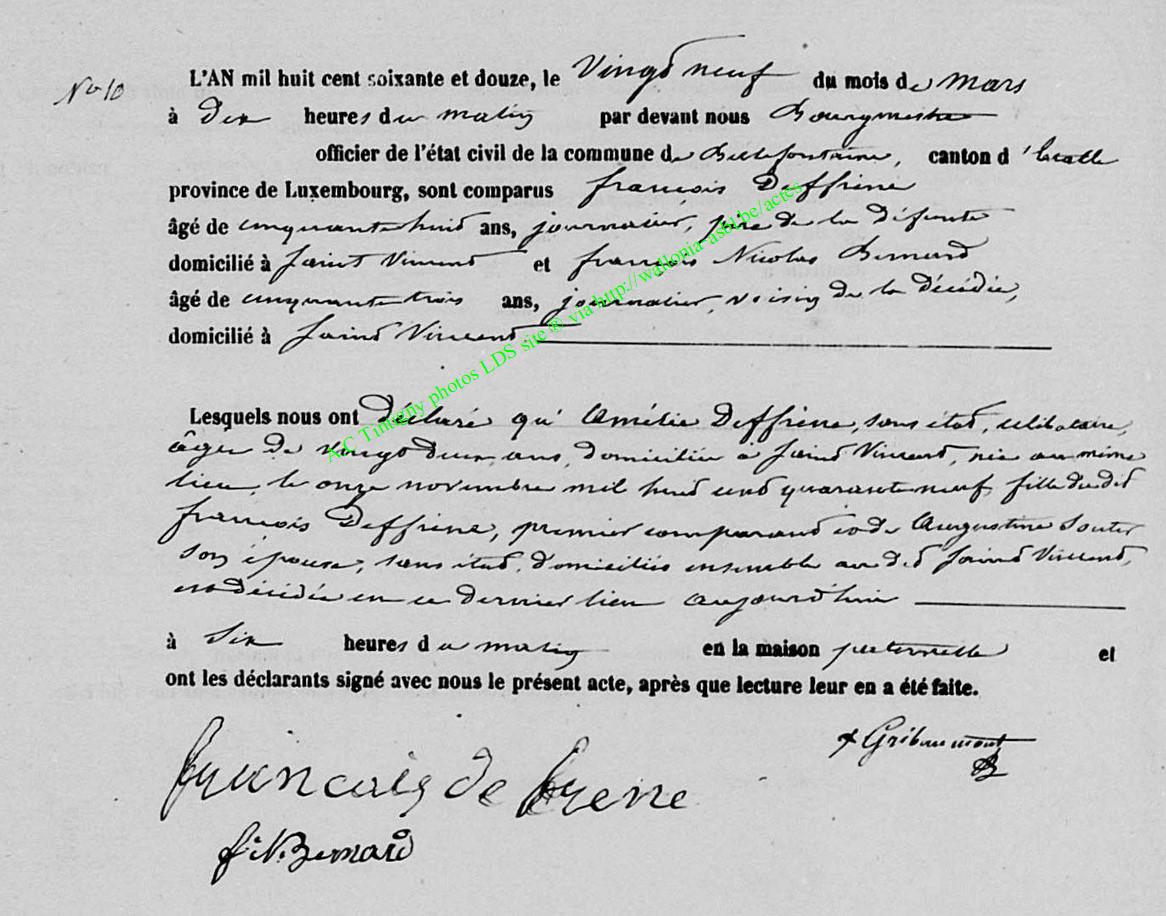 No 10
L'AN mil huit cent soixante et douze, le vingt neuf du mois de mars
à dix heures du matin par devant nous Bourgmestre
officier de l'état civil de la commune de Bellefontaine, canton d'Etalle
province de Luxembourg, sont comparus françois Deffrène
âgé de cinquante huit ans, journalier, père de la défunte
domicilié à Saint Vincent et françois Nicolas Bernard
âgé de cinquante trois ans, journalier, voisin de la décédée,
domicilié à Saint Vincent
Lesquels nous ont déclaré qu'Amélie Deffrène, sans état, célibataire,
âgée de vingt deux ans, domiciliée à Saint Vincent, née au même
lieu, le onze novembre mil huit cent quarante neuf, fille du dit
françois Deffrène, premier comparant et de Augustine
son épouse, sans état, domiciliés ensemble au dit Saint Vincent,
est décédée en ce dernier lieu aujourd'hui
à six heures du matin en la maison paternelle et
ont les déclarants signé avec nous le présent acte, après que lecture leur en a été faite.
Gribaumont
francois de frene
f. N. Bernard
A.C Tintigny photos LDS site ® via http://wallonia-asbl.be/actes